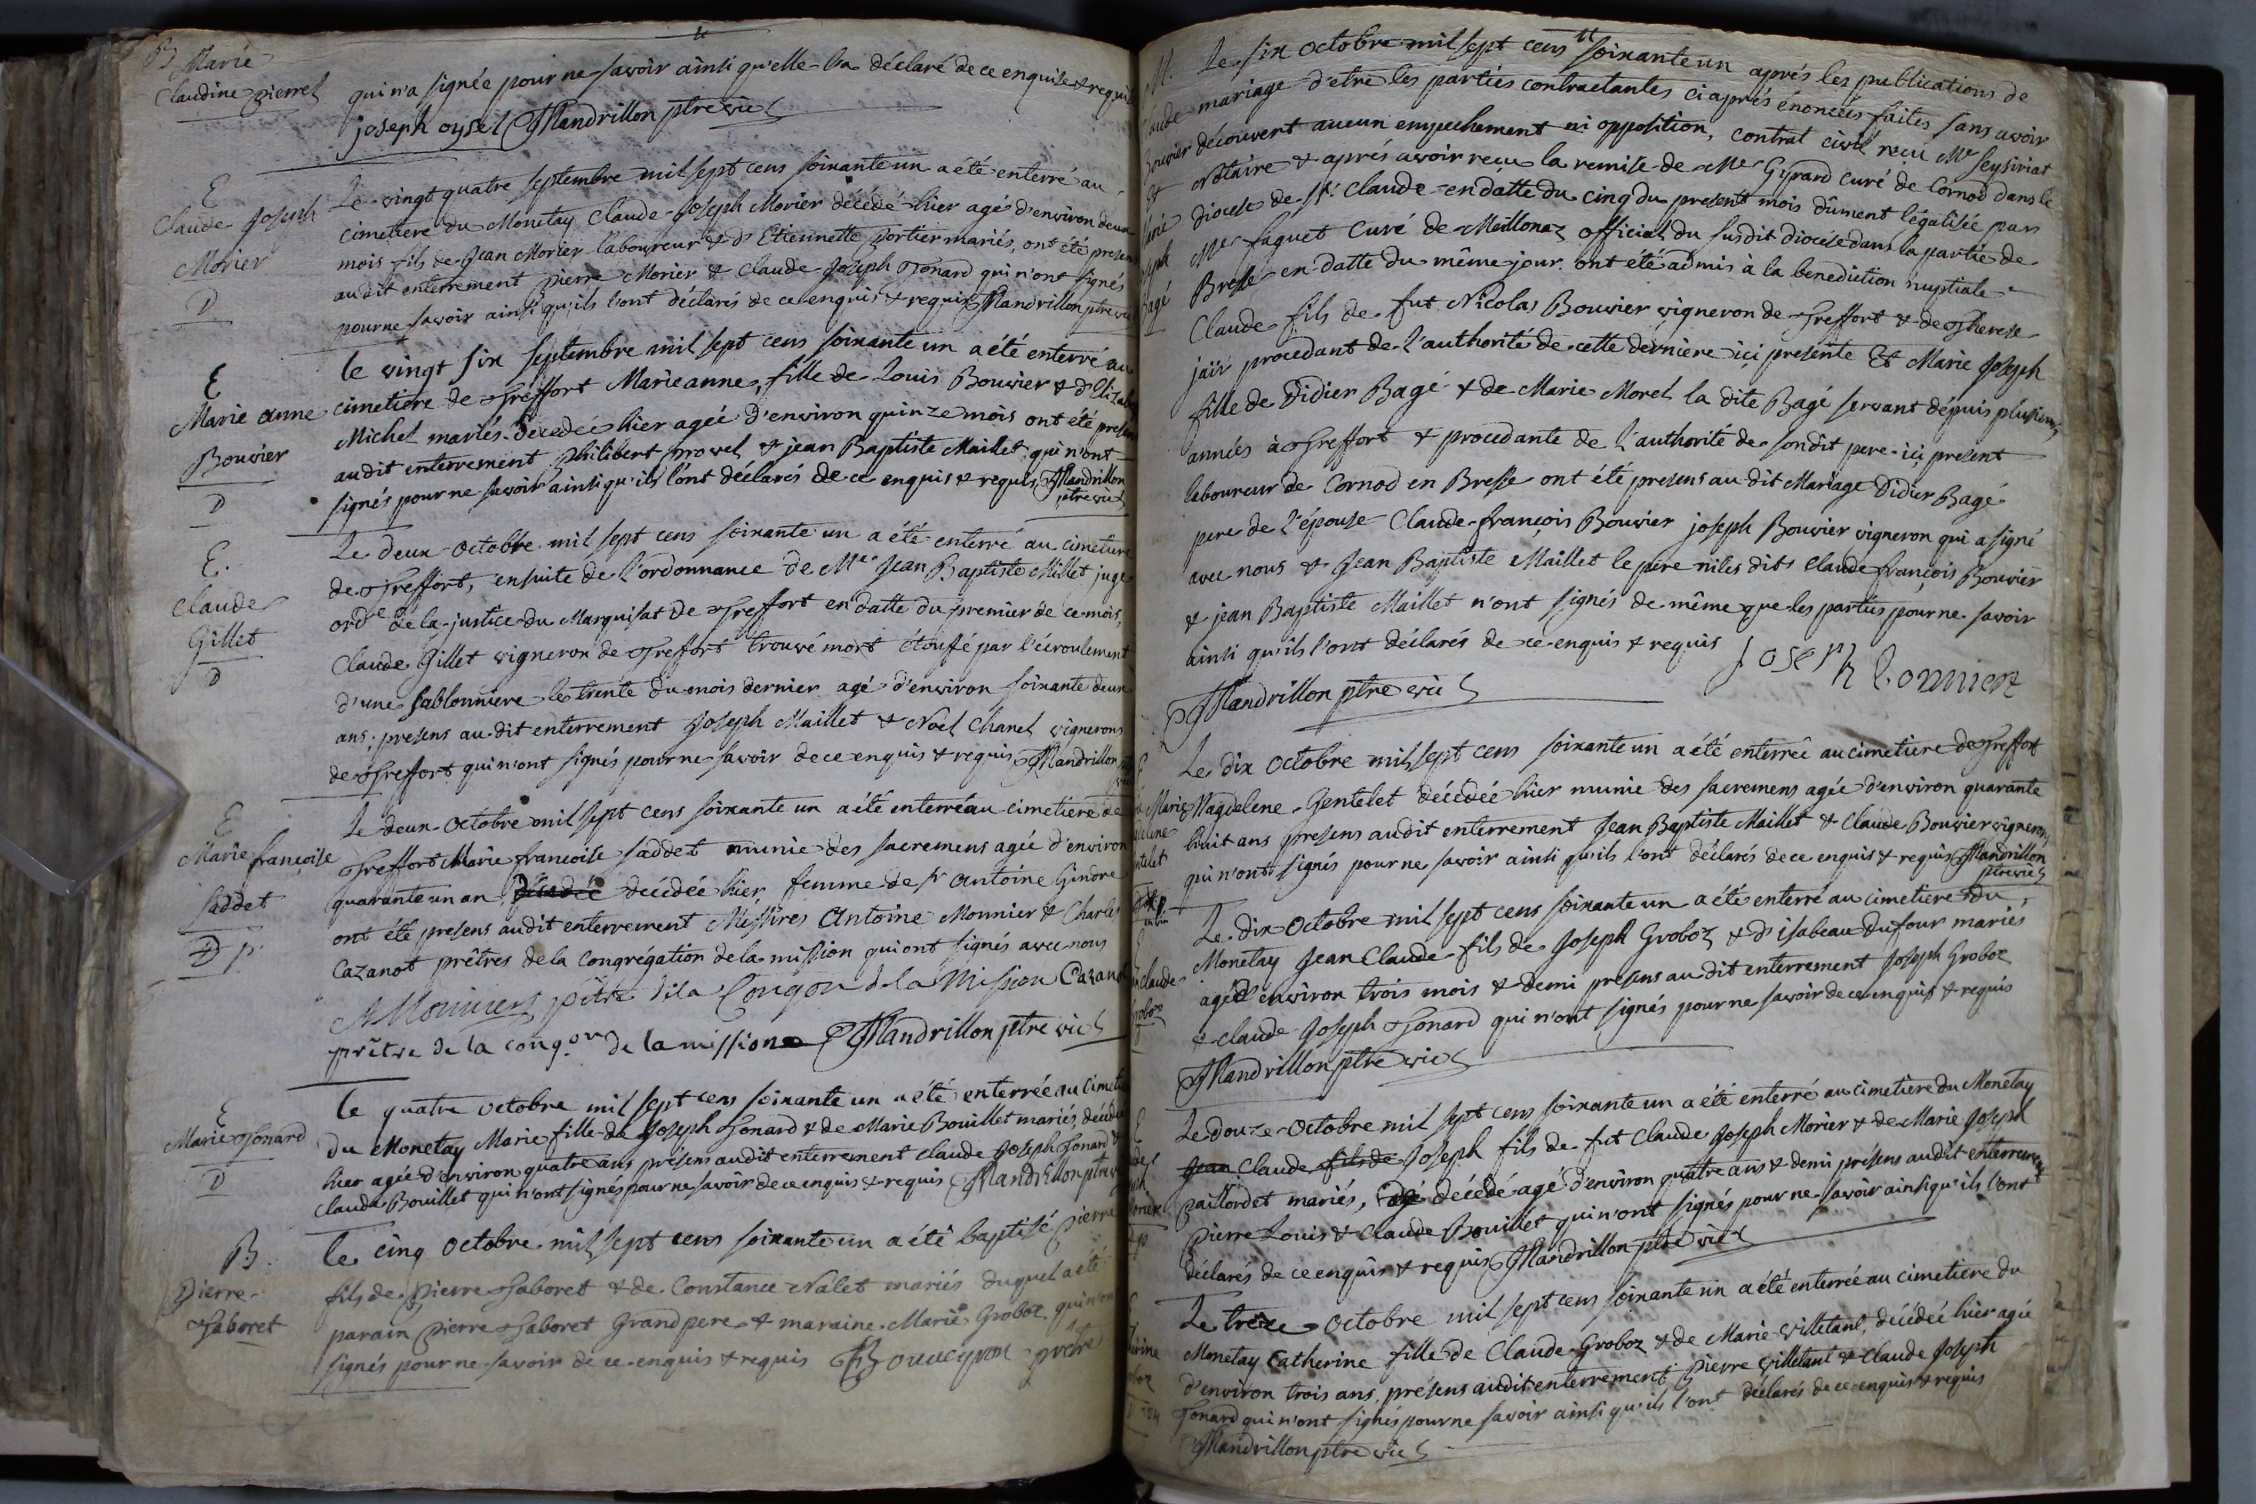 B
Marie
Claudine pierrel
qui n'a signée pour ne savoir ainsi qu'elle l'a déclaré de ce enquise & requise
joseph oysel Mandrillon ptre vic
E
Claude Joseph
Morier
D
Le vingt quatre septembre mil sept cens soixante un a été enterré au
cimetiere du Monetay Claude Joseph Morier décédé hier agé d'environ deux
mois fils de Jean Morier laboureur & d'Etiennette portier mariés, ont été presens
audit enterrement pierre Morier & Claude Joseph Thonard qui n'ont signés
pour ne savoir ainsi qu'ils l'ont déclarés de ce enquis & requis Mandrillon ptre vic
E
Marie anne
Bouvier
D
le vingt six septembre mil sept cens soixante un a été enterré au
cimetiere de Treffort Marie anne, fille de Louis Bouvier & d'Elizabeth
Michel mariés décédée hier agée d'environ quinze mois ont été presens
audit enterrement philibert provel & jean Baptiste Maillet qui n'ont
signés pour ne savoir ainsi qu'ils l'ont déclarés de ce enquis & requis Mandrillon
ptre vic
E.
Claude
Gillet
D
Le deux octobre mil sept cens soixante un a été enterré au cimetiere
de Treffort, ensuite de l'ordonnance de Me Jean Baptiste Millet juge
ordre de la justice du Marquisat de Treffort en datte du premier de ce mois,
Claude Gillet vigneron de Treffort trouvé mort étoufé par l'écroulement
d'une sablonniere le trente du mois dernier agé d'environ soixante deux
ans; presens au dit enterrement Joseph Maillet & Noël Chanel vignerons
de Treffort qui n'ont signés pour ne savoir de ce enquis & requis Mandrillon
E
Marie françoise
saddet
D p.
Le deux octobre mil sept cens soixante un a été enterré au cimetiere de
Treffort Marie françoise saddet munie des sacremens agée d'environ
quarante un an décédée décédée hier, femme de sr Antoine Gindre
ont été presens audit enterrement Messires Antoine Monnier & Charles
Cazanot prêtres de la Congrégation de la mission qui ont signés avec nous
Monnier ptre de la Congon de la Mission Cazanot
prêtre de la congon de la mission Mandrillon ptre vic
E
Marie Thonard
D
le quatre octobre mil sept cens soixante un a été enterrée au cimetiere
du Monetay Marie fille de Joseph Thonard & de Marie Bouillet mariés, décédée
hier agée d'environ quatre ans présens audit enterrement claude Joseph Thonard &
Claude Bouillet qui n'ont signés pour ne savoir de ce enquis & requis Mandrillon ptre vic
B.
Pierre
Thaboret
le cinq octobre mil sept cens soixante un a été baptisé pierre
fils de pierre Thaboret & de Constance Nalet mariés duquel a été
parain pierre Thaboret Grand pere & maraine Marie Groboz qui n'ont
signés pour ne savoir de ce enquis & requis
M.
Le six octobre mil sept cens soixante un aprés les publications de
mariage d'etre les parties contractantes ci aprés énoncées faites sans avoir
découvert aucun empechement ni opposition, contrat civil reçu Me Seysiriat
Notaire & aprés avoir reçu la remise de Mr Gyrard curé de Cornod dans le
diocese de St Claude en datte du cinq du present mois dûment légalisée par
Mr faguet Curé de Meillonaz official du susdit diocése dans la partie de
Bresse en datte du même jour. ont eté admis à la benediction nuptiale
Claude fils de fut Nicolas Bouvier vigneron de Treffort & de Therese
jaïr procedant de l'authorité de cette derniere içi presente Et Marie Joseph
fille de Didier Bagé & de Marie Morel la dite Bagé servant dépuis plusieurs
annés à Treffort & procedante de l'authorité de sondit pere içi present
laboureur de Cornod en Bresse ont été presens au dit Mariage Didier Bagé
pere de l'épouse Claude françois Bouvier joseph Bouvier vigneron qui a signé
avec nous & Jean Baptiste Maillet le pere niles dits Claude françois Bouvier
& jean Baptiste Maillet n'ont signés de même que les parties pour ne savoir
ainsi qu'ils l'ont déclarés de ce enquis & requis Joseph bouvier
Mandrillon ptre vic
Le dix octobre mil sept cens soixante un a été enterreé au cimetiere de Treffort
Marie Magdelene Gentelet décédée hier munie des sacremens agée d'environ quarante
huit ans presens audit enterrement Jean Baptiste Maillet & Claude Bouvier vignerons
qui n'ont signés pour ne savoir ainsi qu'ils l'ont déclarés de ce enquis & requis Mandrillon
ptre vic
Le dix octobre mil sept cens soixante un a été enterré au cimetiere du
Monetay Jean Claude fils de Joseph Groboz & d'isabeau dufour mariés
agé d'environ trois mois & demi presens au dit enterrement Joseph Groboz
& claude Joseph Thonard qui n'ont signés pour ne savoir de ce enquis & requis
Mandrillon ptre vic
Le douze octobre mil sept cens soixante un a été enterré au cimetiere du Monetay
Jean Claude fils de Joseph fils de fut Claude Joseph Morier & de Marie Joseph
paillordet mariés, décédé agé d'environ quatre ans & demi présens audit enterrement
pierre Louis & Claude Bouillet qui n'ont signés pour ne savoir ainsi qu'ils l'ont
déclarés de ce enquis & requis Mandrillon ptre vic
Le treize octobre mil sept cens soixante un a été enterrée au cimetiere du
Monetay Catherine fille de Claude Groboz & de Marie Villetant, décédée hier agée
d'environ trois ans, présens audit enterrement pierre Villetant & Claude Joseph
Thonard qui n'ont signés pour ne savoir ainsi qu'ils l'ont déclarés de ce enquis & requis
Mandrillon ptre vic